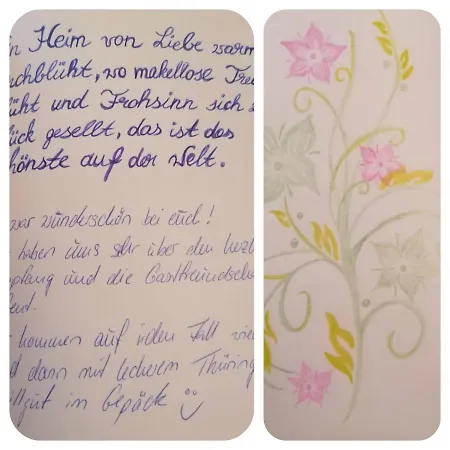 n Heim von Liebe warm
rchblüht, wo makellose Freu
üht und Frohsinn sich z
ück gesellt, das ist das
hönste auf der Welt.
war wunderschön bei euch!
haben uns sehr über den herzl
pfang und die Gastfreundscha
eut.
kommen auf jeden Fall wie
d dann mit leckerem Thüring
llgut im Gepäck